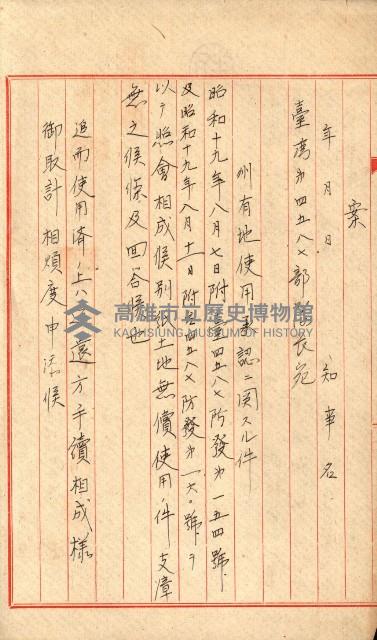 案
年 月 日 知事名
臺湾第四五八七部隊長宛
州有地使用承認ニ関スル件
昭和十九年八月七日附臺四五八七防發第一五四號
及昭和十九年八月十一日附臺四五八七防發第一六〇號ヲ
以テ照會相成候別紙土地無償使用ノ件支障
無之候條及回答候也
追而使用済ノ上ハ返還方手續相成様
御取計相煩度申添候
高雄市立歷史博物館
KAOHSIUNG MUSEUM OF HISTORY